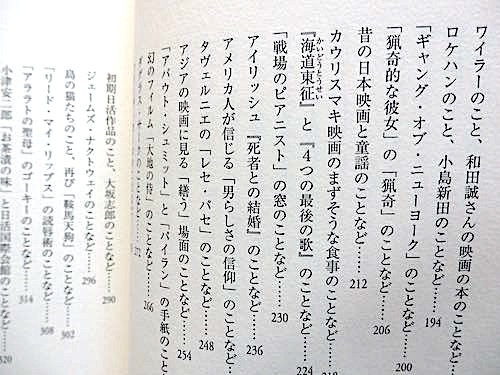 ワイラーのこと、和田誠さんの映画の本のことなど
ロケハンのこと、小島新田のことなど……
「ギャング・オブ・ニューヨーク」のことなど…… 194
「猟奇的な彼女」の「猟奇」のことなど…… 200
昔の日本映画と童謡のことなど…… 206
カウリスマキ映画のまずそうな食事のことなど…… 212
『海道東征』と『4つの最後の歌』のことなど…… 218
かいどうとうせい
「戦場のピアニスト」の窓のことなど…… 224
アイリッシュ『死者との結婚』のことなど…… 230
アメリカ人が信じる「男らしさの信仰」のことなど…… 236
タヴェルニエの「レセ・パセ」のことなど…… 248
アジアの映画に見る「繕う」場面のことなど…… 254
「アバウト・シュミット」と「パイラン」の手紙のこと
幻のフィルム「大地の侍」のことなど…… 266
のことなど…… 272
初期日活作品のこと、大坂志郎のことなど…… 290
ジェームズ・ナクトウェイのことなど…… 296
島の猫たちのこと、再び「鞍馬天狗」のことなど…… 302
「リード・マイ・リップス」の読唇術のことなど…… 308
「アララトの聖母」のゴーキーのことなど…… 314
小津安二郎「お茶漬の味」と日活国際会館のことなど…… 320